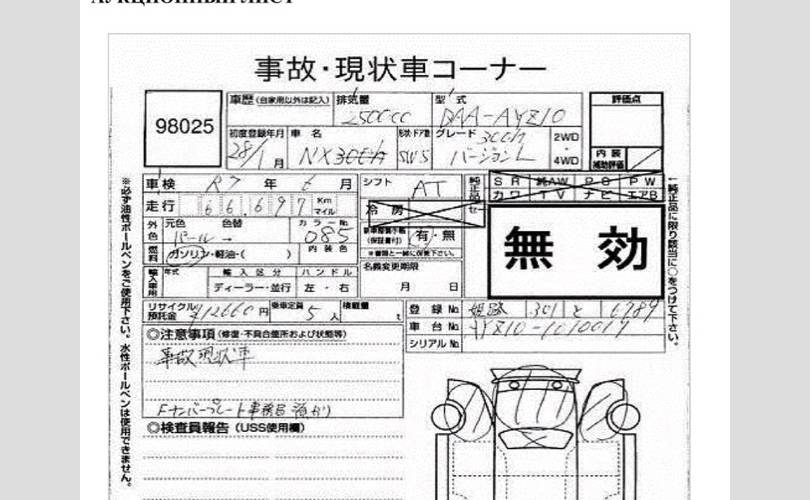 АУКЦИОННЫЙ ЛИСТ
事故・現状車コーナー
98025
車歴 (自家用以外は記入)
排気量 2500cc
型式 DAA-AYZ10
評価点
初度登録年月 28/1月
車名 NX300h
形状・ドア数 SW5
グレード 300h バージョンL
2WD・4WD
内装補助評価
車検 R7年6月
シフト AT
純正品
SR 純AW PS PW
カワ TV ナビ エアB
走行 66,697 Km マイル
冷房
セー
無効
外色 元色 パール→ 色替
カラーNo. 085
内装色
(保証書付) 有・無
燃料 ガソリン・軽油・( )
※書類と一緒に保管下さい。
名義変更期限
月 日
輸入車用 年式 輸入区分 ハンドル
ディーラー・並行 左・右
リサイクル預託金 ¥12660円
乗車定員 5人
積載量 t
登録No. 姫路 301 と 6789
車台No. AYZ10-1010017
シリアルNo.
◎注意事項 (修復・不具合箇所および状態等)
事故現状車
Fナンバープレート事務局預かり
◎検査員報告 (USS使用欄)
※必ず油性ボールペンをご使用下さい。水性ボールペンは使用できません。
←純正品に限り該当に○をつけて下さい。